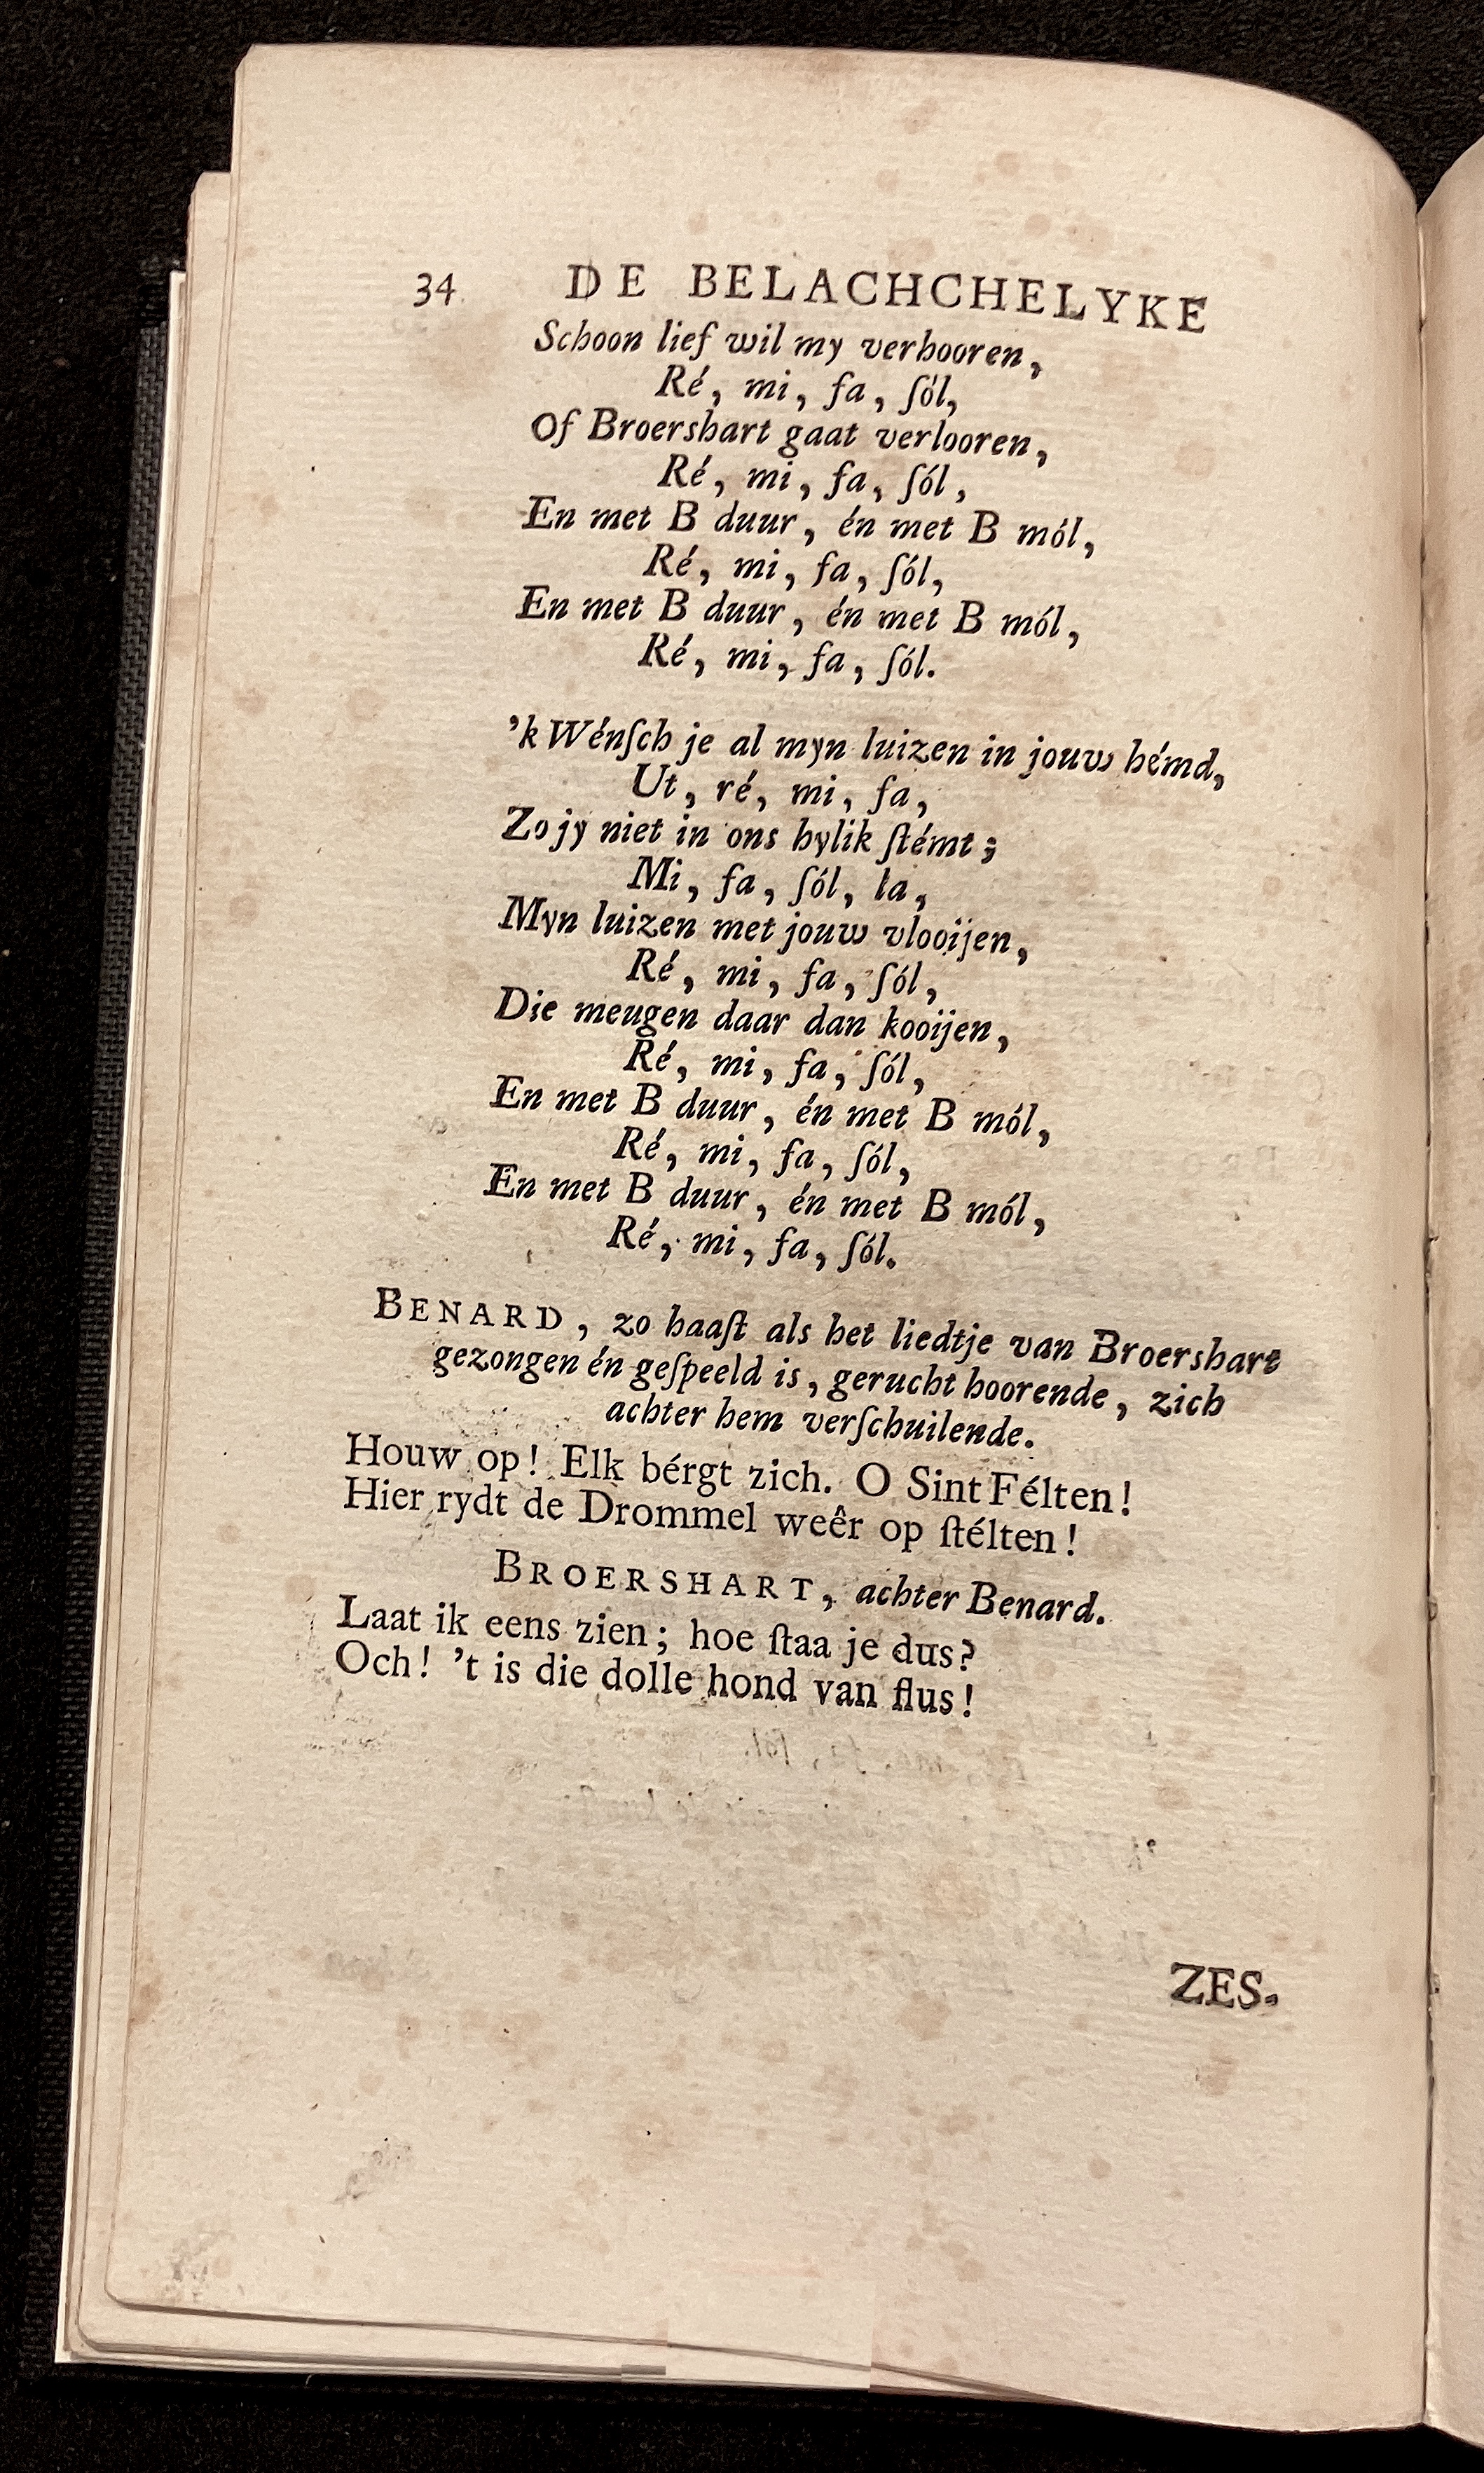 34 DE BELACHCHELYKE
Schoon lief wil my verhooren,
Ré, mi, fa, ſól,
Of Broershart gaat verlooren,
Ré, mi, fa, ſól,
En met B duur, én met B mól,
Ré, mi, fa, ſól,
En met B duur, én met B mól,
Ré, mi, fa, ſól.
'k Wénſch je al myn luizen in jouw hémd,
Ut, ré, mi, fa,
Zo jy niet in ons hylik ſtémt;
Mi, fa, ſól, la,
Myn luizen met jouw vlooijen,
Ré, mi, fa, ſól,
Die meugen daar dan kooijen,
Ré, mi, fa, ſól,
En met B duur, én met B mól,
Ré, mi, fa, ſól,
En met B duur, én met B mól,
Ré, mi, fa, ſól.
BENARD, zo haaſt als het liedtje van Broershart
gezongen én geſpeeld is, gerucht hoorende, zich
achter hem verſchuilende.
Houw op! Elk bérgt zich. O Sint Félten!
Hier rydt de Drommel weêr op ſtélten!
BROERSHART, achter Benard.
Laat ik eens zien; hoe ſtaa je dus?
Och! 't is die dolle hond van flus!
ZES.